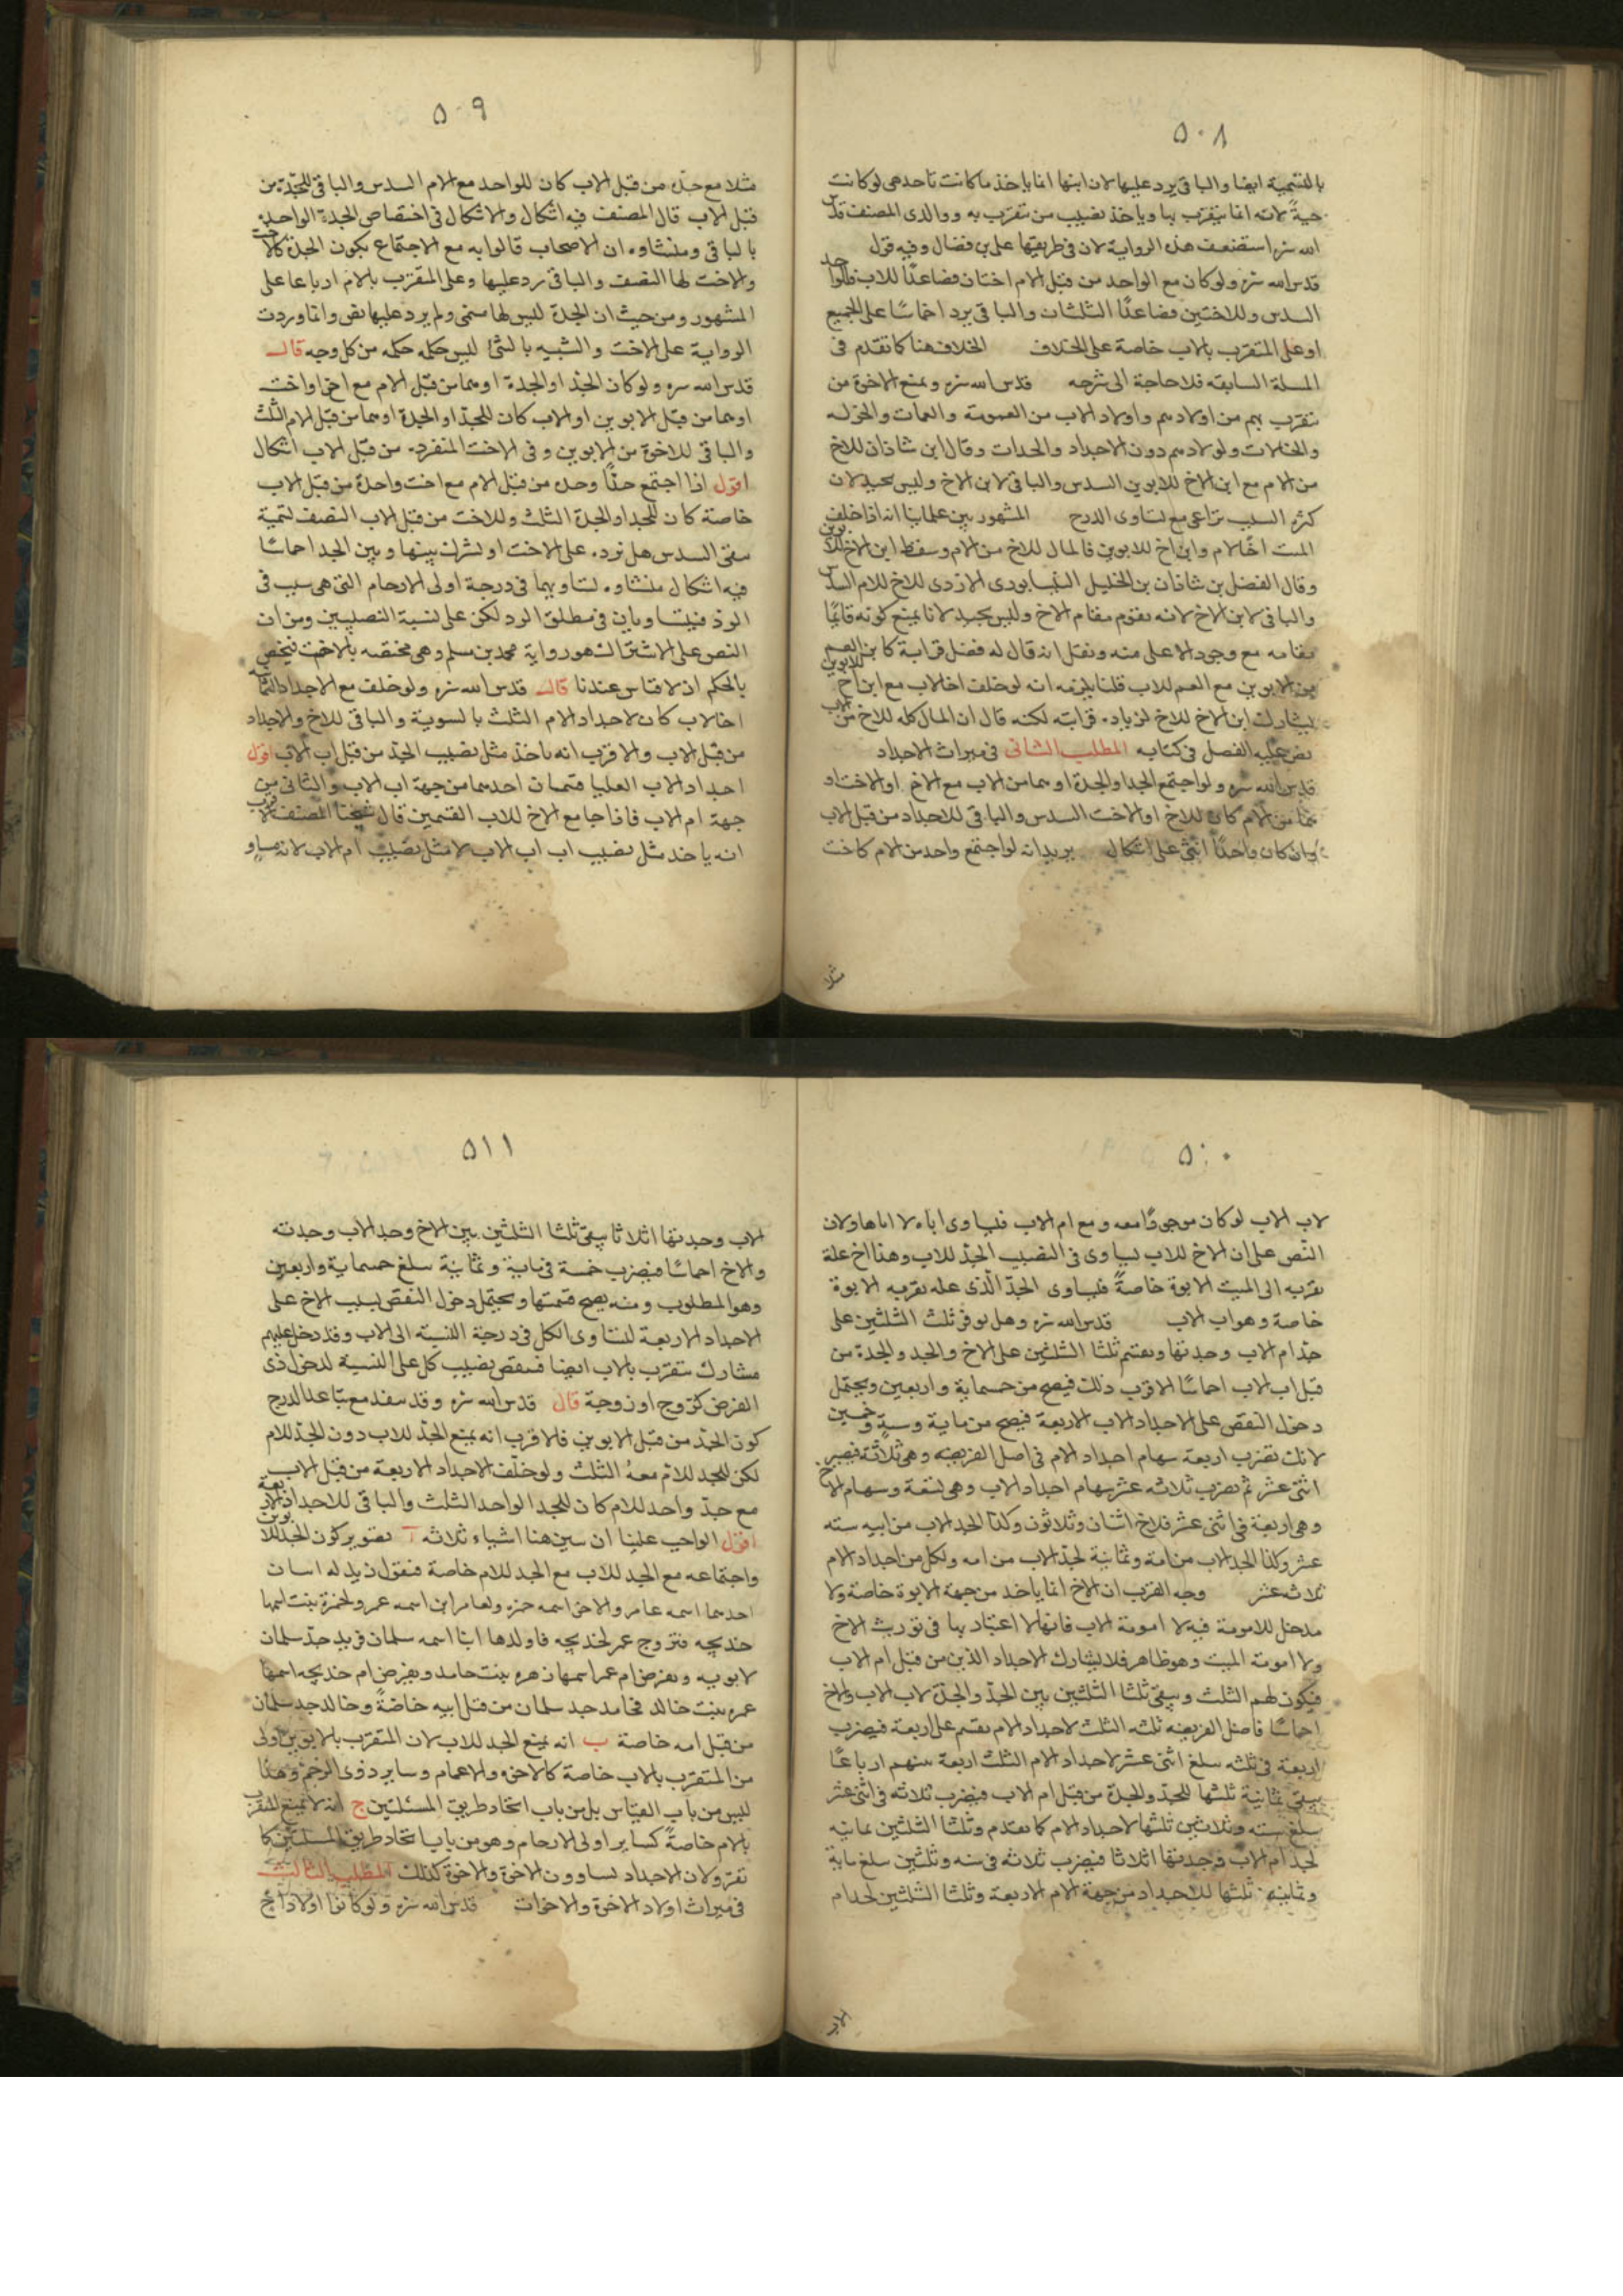 ٥٠٨
بالتسمية ايضا والباقي يرد عليها لان ابنها انما ياخذ ما كانت تاخذ هي لو كانت
حيةً لانه انما يتقرب بها وياخذ نصيب من تقرب به ووالدي المصنف قدس
الله سره استضعف هذه الرواية لان في طريقها علي بن فضال وفيه قول
قدس الله سره ولو كان مع الواحد من قبل الام اختان فصاعدًا للاب فللواحد
السدس وللاختين فصاعدًا الثلثان والباقي يرد اخماسًا على الجميع
او على المتقرب بالاب خاصة على الخلاف الخلاف هنا كما تقدم في
المسلة السابقه فلا حاجة الى شرحه قدس الله سره ويمنع الاخوة من
تقرب بهم من اولادهم واولاد الاب من العمومة والعمات والخوله
والخالات واولادهم دون الاجداد والجدات وقال ابن شاذان للاخ
من الام مع ابن الاخ للابوين السدس والباقي لابن الاخ وليس بجيد لان
كثرة السبب تراعى مع تساوى الدرج المشهور بين علماينا انه اذا خلف
الميت اخًا لام وابن اخ للابوين فالمال للاخ من الام وسقط ابن الاخ للابوين
وقال الفضل بن شاذان بن الخليل النيسابورى الازدى للاخ للام السدس
والباقي لابن الاخ لانه يقوم مقام الاخ وليس بجيد لانا نمنع كونه قايمًا
مقامه مع وجود الاعلى منه ونقل انه قال له فضل قرابة كابن العم
من الابوين مع العم للاب قلنا يلزمه انه لو خلف اخا لاب مع ابن اخ للابوين
يشارك ابن الاخ للاخ لزياده قرابته لكنه قال ان المال كله للاخ من الاب
نص عليه الفضل في كتابه المطلب الثاني في ميراث الاجداد
قدس الله سره ولو اجتمع الجد او الجدة او هما من الاب مع الاخ او الاخت او
هما من الام كان للاخ او الاخت السدس والباقي للاجداد من قبل الاب
وان كان واحدًا انثى على اشكال يريد انه لو اجتمع واحد من الام كاخت
مثلا
٥٠٩
مثلا مع جده من قبل الاب كان للواحد مع الام السدس والباقي للجدة من
قبل الاب قال المصنف فيه اشكال والاشكال في اختصاص الجدة الواحده
بالباقي ومنشاوه ان الاصحاب قالوا به مع الاجتماع بكون الجدة كالاخت
والاخت لها النصف والباقي يرد عليها وعلى المتقرب بالام ارباعا على
المشهور ومن حيث ان الجدة ليس لها مسمى ولم يرد عليها نص وانما وردت
الرواية على الاخت والشبيه بالشئ ليس حكمه حكمه من كل وجه قال
قدس الله سره ولو كان الجد او الجدة او هما من قبل الام مع اخ او اخت
او هما من قبل الابوين او الاب كان للجد او الجدة او هما من قبل الام الثلث
والباقي للاخوة من الابوين وفي الاخت المنفرده من قبل الاب اشكال
اقول اذا اجتمع جدًا وجده من قبل الام مع اخت واحدة من قبل الاب
خاصة كان للجد او الجدة الثلث وللاخت من قبل الاب النصف لتمية
بقى السدس هل نرده على الاخت او نشرك بينها وبين الجد اخماسًا
فيه اشكال منشاوه تساويهما في درجة اولى الارحام التي هي سبب في
الرد فيتساويان في مطلق الرد لكن على نسبة النصيبين ومن ان
النص على الاشتراك هو رواية محمد بن مسلم وهي مختصه بالاخت فيختص
بالحكم اذ لا قياس عندنا قال قدس الله سره ولو خلف مع الاجداد الثمانية
اخا لاب كان لاجداد الام الثلث بالسوية والباقي للاخ والاجداد
من قبل الاب والاقرب انه ياخذ مثل نصيب الجد من قبل اب الاب اقول
اجداد الاب العليا قسمان احدهما من جهة اب الاب والثاني من
جهة ام الاب فاذا جامع الاخ للاب القسمين قال شيخنا المصنف الاقرب
انه ياخذ مثل نصيب اب اب الاب لا مثل نصيب ام الاب لانه مساو
٥١٠
لاب الاب لو كان موجودًا معه ومع ام الاب فيساوى اباه لا اباها ولان
النّص على ان الاخ للاب يساوى في النصيب الجد للاب وهذا اخ علة
تقربه الى الميت الابوة خاصةً فيساوى الجدّ الّذى علة تقربه الابوة
خاصة وهو اب الاب قدس الله سره وهل يوفر ثلث الثلثين على
جد ام الاب وجدتها ويقسم ثلثا الثلثين على الاخ والجد والجدة من
قبل اب الاب اخماسًا الاقرب ذلك فيصح من خمسماية واربعين ويحتمل
دخول النقص على الاجداد الاب الاربعة فيصح من ماية وستةٍ وخمسين
لانك تضرب اربعة سهام اجداد الام في اصل الفريضه وهي ثلاثة فيصير
اثنى عشر ثم تضرب ثلاثه عشر سهام اجداد الاب وهي تسعة وسهام الاخ
وهي اربعة في اثنى عشر فللاخ اثنان وثلاثون وكذا الجد الاب من ابيه سته
عشر وكذا الجد الاب من امه وثمانية لجد الاب من امه ولكل من اجداد الام
ثلاثه عشر وجه القرب ان الاخ انما ياخذ من جهة الابوة خاصة ولا
مدخل للامومة فيه لا امومة الاب فانها لا اعتبار بها في توريث الاخ
ولا امومة الميت وهو ظاهر فلا يشارك الاجداد الذين من قبل ام الاب
فيكون لهم الثلث ويبقى ثلثا الثلثين بين الجد والجدة لاب الاب والاخ
اخماسًا فاصل الفريضه ثلثه الثلث لاجداد الام يقسم على اربعة فيضرب
اربعة في ثلثه سلغ اثنى عشر لاجداد الام الثلث اربعة سنهم ارباعًا
يبقى ثمانية ثلثها للجد والجدة من قبل ام الاب فيضرب ثلاثه في اثنى عشر
سلغ سته وثلاثين ثلثها لاجداد الام كما تقدم وثلثا الثلثين ثمانيه
لجد ام الاب وجدتها اثلاثا فيضرب ثلاثه في سته وثلثين سلغ ماية
وثمانيه ثلثها للاجداد من جهة الام الاربعة وثلثا الثلثين لجد ام
الاب
٥١١
الاب وجدتها اثلاثا يبقى ثلثا الثلثين بين الاخ وجد الاب وجدته
والاخ اخماسًا فيضرب خمسة في ماية وثمانية سلغ خمسماية واربعين
وهو المطلوب ومنه يصح قسمتها ويحتمل دخول النقص بسبب الاخ على
الاجداد الاربعة لتساوى الكل في درجة النسبه الى الاب وقد دخل عليهم
مشارك يتقرب بالاب ايضا فينقص نصيب كل على النسبة لدخول ذى
الفرض كزوج او زوجة قال قدس الله سره وقد سفد مع تباعد الدرج
كون الجد من قبل الابوين فالاقرب انه يمنع الجد للاب دون الجد للام
لكن للجد للام معهُ الثلث ولو خلّف الاجداد الاربعة من قبل الاب
مع جد واحد للام كان للجد الواحد الثلث والباقي للاجداد الاربعة
اقول الواجب علينا ان نبين هنا اشياء ثلاثه آ تصوير كون الجد للابوين
واجتماعه مع الجد للاب مع الجد للام خاصة فنقول زيد له ابنان
احدهما اسمه عامر والاخر اسمه حمزه ولعامر ابن اسمه عمر ولحمزة بنت اسمها
خديجه فتزوج عمر لخديجه فاولدها ابنا اسمه سلمان فزيد جد سلمان
لابويه ونفرض ام عمر اسمها زهره بنت حامد ونفرض ام خديجه اسمها
عمره بنت خالد فحامد جد سلمان من قبل ابيه خاصةً وخالد جد سلمان
من قبل امه خاصة ب انه يمنع الجد للاب لان المتقرب بالابوين اولى
من المتقرب بالاب خاصة كالاخوه والاعمام وساير ذوى الرحم وهذا
ليس من باب القياس بل من باب اتحاد طريق المسئلتين ج انه لا يمنع المتقرب
بالام خاصةً كساير اولى الارحام وهو من باب اتحاد طريق المسئلتين كما
تقرر ولان الاجداد يساوون الاخوة والاخوة كذلك المطلب الثالث
في ميراث اولاد الاخوة والاخوات قدس الله سره ولو كانوا اولاد اخ